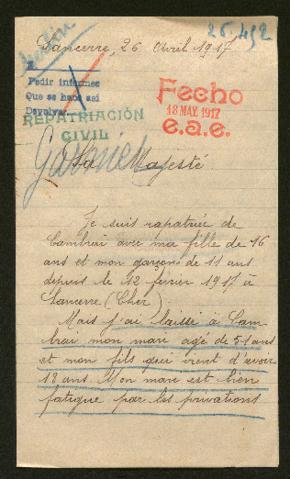 26,492
Sancerre, 26 Avril 1917
Pedir informes
Que se haga así
Devolver
REPATRIACIÓN
CIVIL
Fecho
18 MAY. 1917
e.a.e.
Sa Majesté
Je suis rapatriée de
Cambrai avec ma fille de 16
ans et mon garçon de 11 ans
depuis le 12 février 1917 à
Sancerre (Cher).
Mais j'ai laissé à Cam-
brai mon mari agé de 51 ans
et mon fils qui vient d'avoir
18 ans. Mon mari est bien
fatigué par les privations